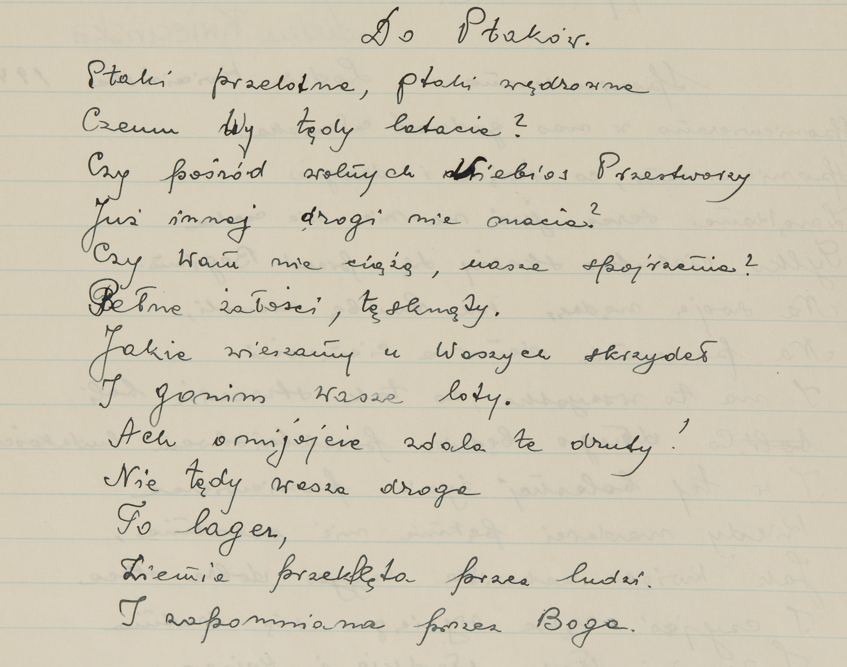 Do Ptaków.
Ptaki przelotne, ptaki wędrowne
Czemu Wy tędy latacie?
Czy pośród wolnych Niebios Przestworzy
Już innej drogi nie macie?
Czy Wam nie ciężą, nasze spojrzenia?
Pełne żałości, tęsknoty.
Jakie wieszamy u Waszych skrzydeł
I gonim wasze loty.
Ach omijajcie zdala te druty!
Nie tędy wasza droga
To lager,
Ziemia przeklęta przez ludzi.
I zapomniana przez Boga.